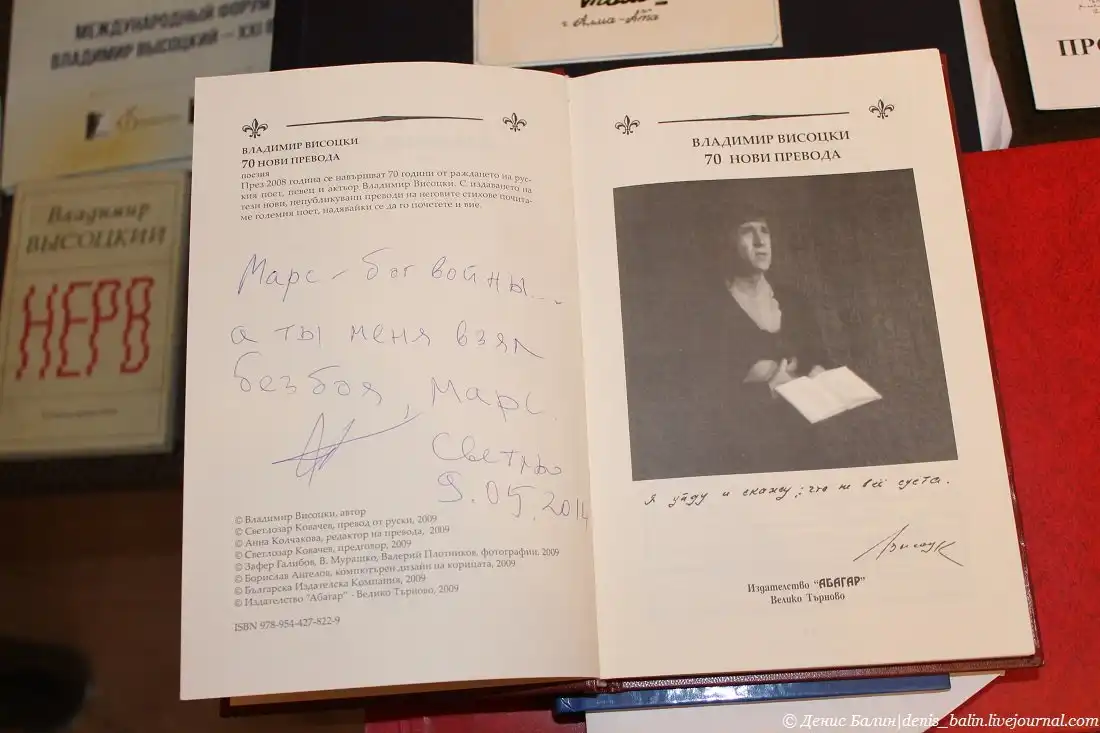 МЕЖДУНАРОДНЫЙ ФОРУМ
ВЛАДИМИР ВЫСОЦКИЙ — XXI В
г. Алма-Ата
ПРО
Владимир
ВЫСОЦКИЙ
НЕРВ
ВЛАДИМИР ВИСОЦКИ
70 НОВИ ПРЕВОДА
поезия
През 2008 година се навършват 70 години от раждането на рус-
кия поет, певец и актьор Владимир Висоцки. С издаването на
тези нови, непубликувани преводи на неговите стихове почита-
ме големия поет, надявайки се да го почетете и вие.
Марс - бог войны...
а ты меня взял
без боя, Марс.
Светльо
9.05.2014
© Владимир Висоцки, автор
© Светлозар Ковачев, превод от руски, 2009
© Анна Колчакова, редактор на превода, 2009
© Светлозар Ковачев, предговор, 2009
© Зафер Галибов, В. Мурашко, Валерий Плотников, фотографии, 2009
© Борислав Ангелов, компютърен дизайн на корицата, 2009
© Българска Издателска Компания, 2009
© Издателство "Абагар" - Велико Търново, 2009
ISBN 978-954-427-822-9
ВЛАДИМИР ВИСОЦКИ
70 НОВИ ПРЕВОДА
Я уйду и скажу, что не всё суета.
Издателство "АБАГАР"
Велико Търново
© Денис Балин|denis_balin.livejournal.com